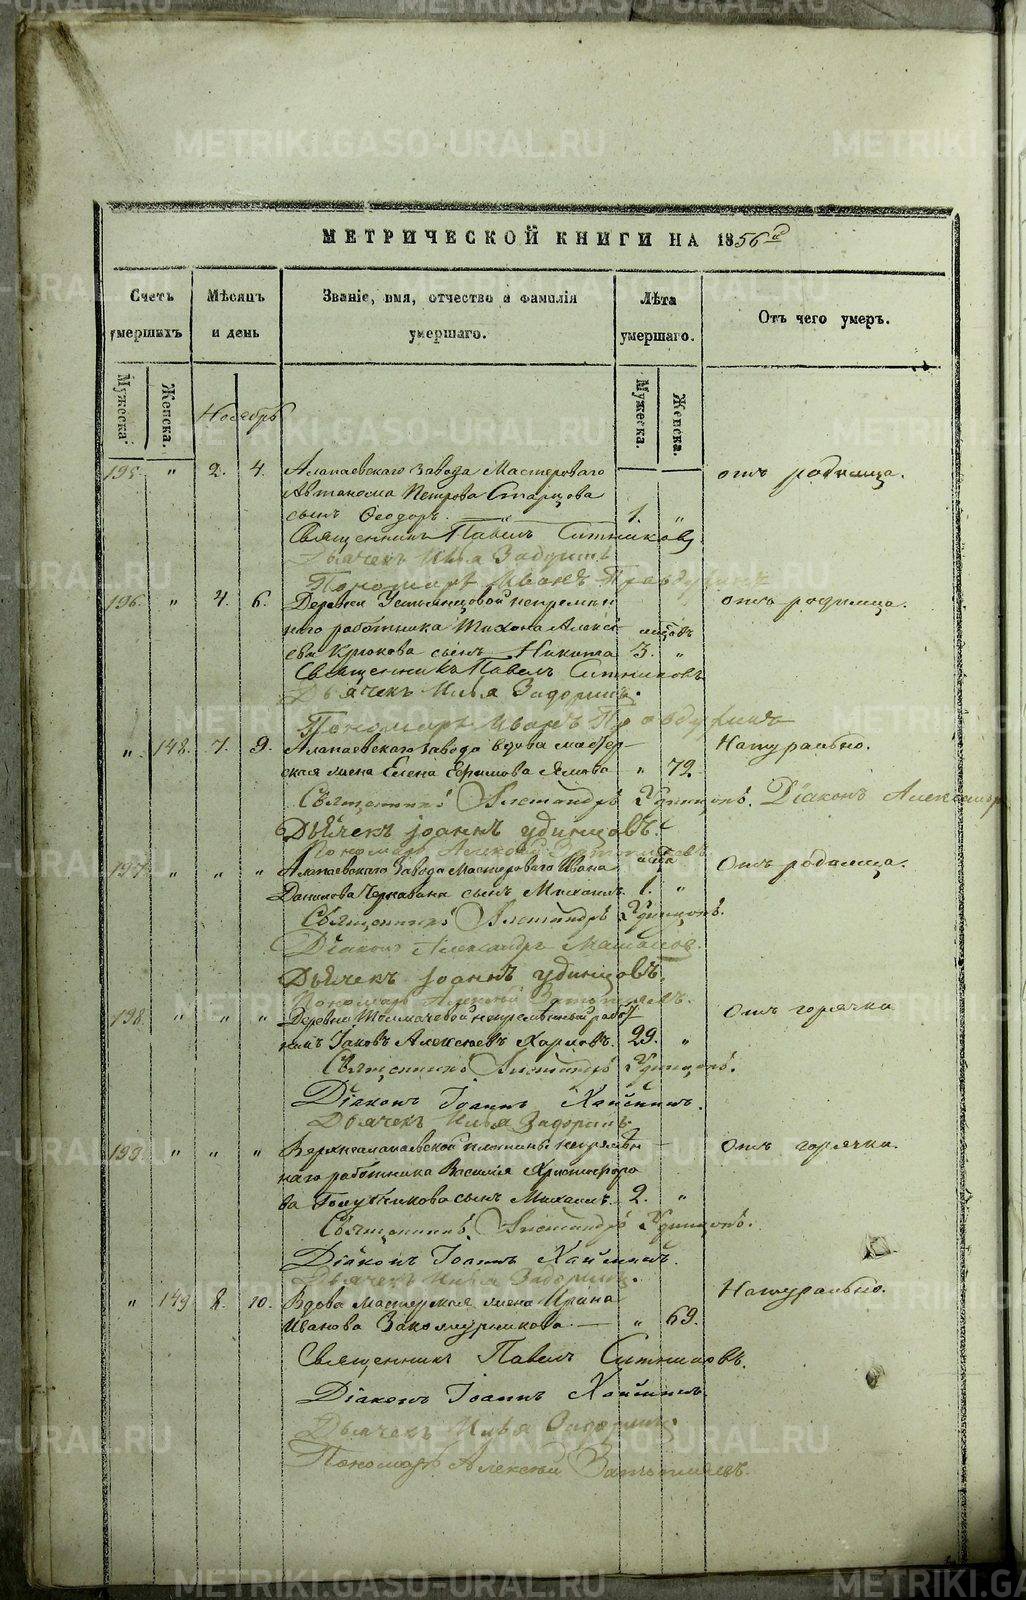 МЕТРИЧЕСКОЙ КНИГИ НА 1856 й
Счетъ умершихъ
Мѣсяцъ и день
Званіе, имя, отчество и фамилія умершаго.
Лѣта умершаго.
Отъ чего умеръ.
Мужеска.
Женска.
Мужеска.
Женска.
Ноябрь
195. " 2. 4. Алапаевскаго завода Мастероваго отъ родимца.
Автанома Петрова Старцова
сынъ Ѳеодоръ. 1. "
Священникъ Павелъ Ситниковъ
Дьячекъ Илья Задоринъ
Пономарь Иванъ Правдухинъ
196. " 4. 6. Деревни Устьянцовой непремѣн отъ родимца.
наго работника Тихона Алексѣ мѣсцовъ
ева Крюкова сынъ Никита 3. "
Священникъ Павелъ Ситниковъ
Дьячекъ Илья Задоринъ.
Пономарь Иванъ Правдухинъ
" 148. 7. 9. Алапаевскаго завода вдова мастер- Натурально.
ская жена Елена Ефимова " 79.
Священникъ Александръ Удинцовъ. Діаконъ Александръ
Дьячекъ Іоаннъ Удинцовъ.
Пономарь Алексѣй
197. " " " Алапаевскаго завода Мастероваго Ивана Отъ родимца.
Данилова сынъ Михаилъ. 1. "
Священникъ Александръ Удинцовъ.
Діаконъ Александръ
Дьячекъ Іоаннъ Удинцовъ.
Пономарь Алексѣй
198. " " " Деревни Толмачевой непремѣнный работ Отъ горячки
никъ Іаковъ Алексѣевъ Харловъ. 29. "
Священникъ Александръ Удинцовъ.
Діаконъ Іоаннъ
Дьячекъ Илья Задоринъ
199. " " " Верхнеалапаевской плотины непремѣн Отъ горячки
наго работника Василія Христофоро
ва Голубчикова сынъ Михаилъ. 2. "
Священникъ Александръ Удинцовъ.
Діаконъ Іоаннъ
Дьячекъ Илья Задоринъ.
" 149 8. 10. Вдова Мастерская жена Ирина Натурально.
Иванова " 69.
Священникъ Павелъ Ситниковъ.
Діаконъ Іоаннъ
Дьячекъ Илья Задоринъ.
Пономарь Алексѣй
METRIKI.GASO-URAL.RU